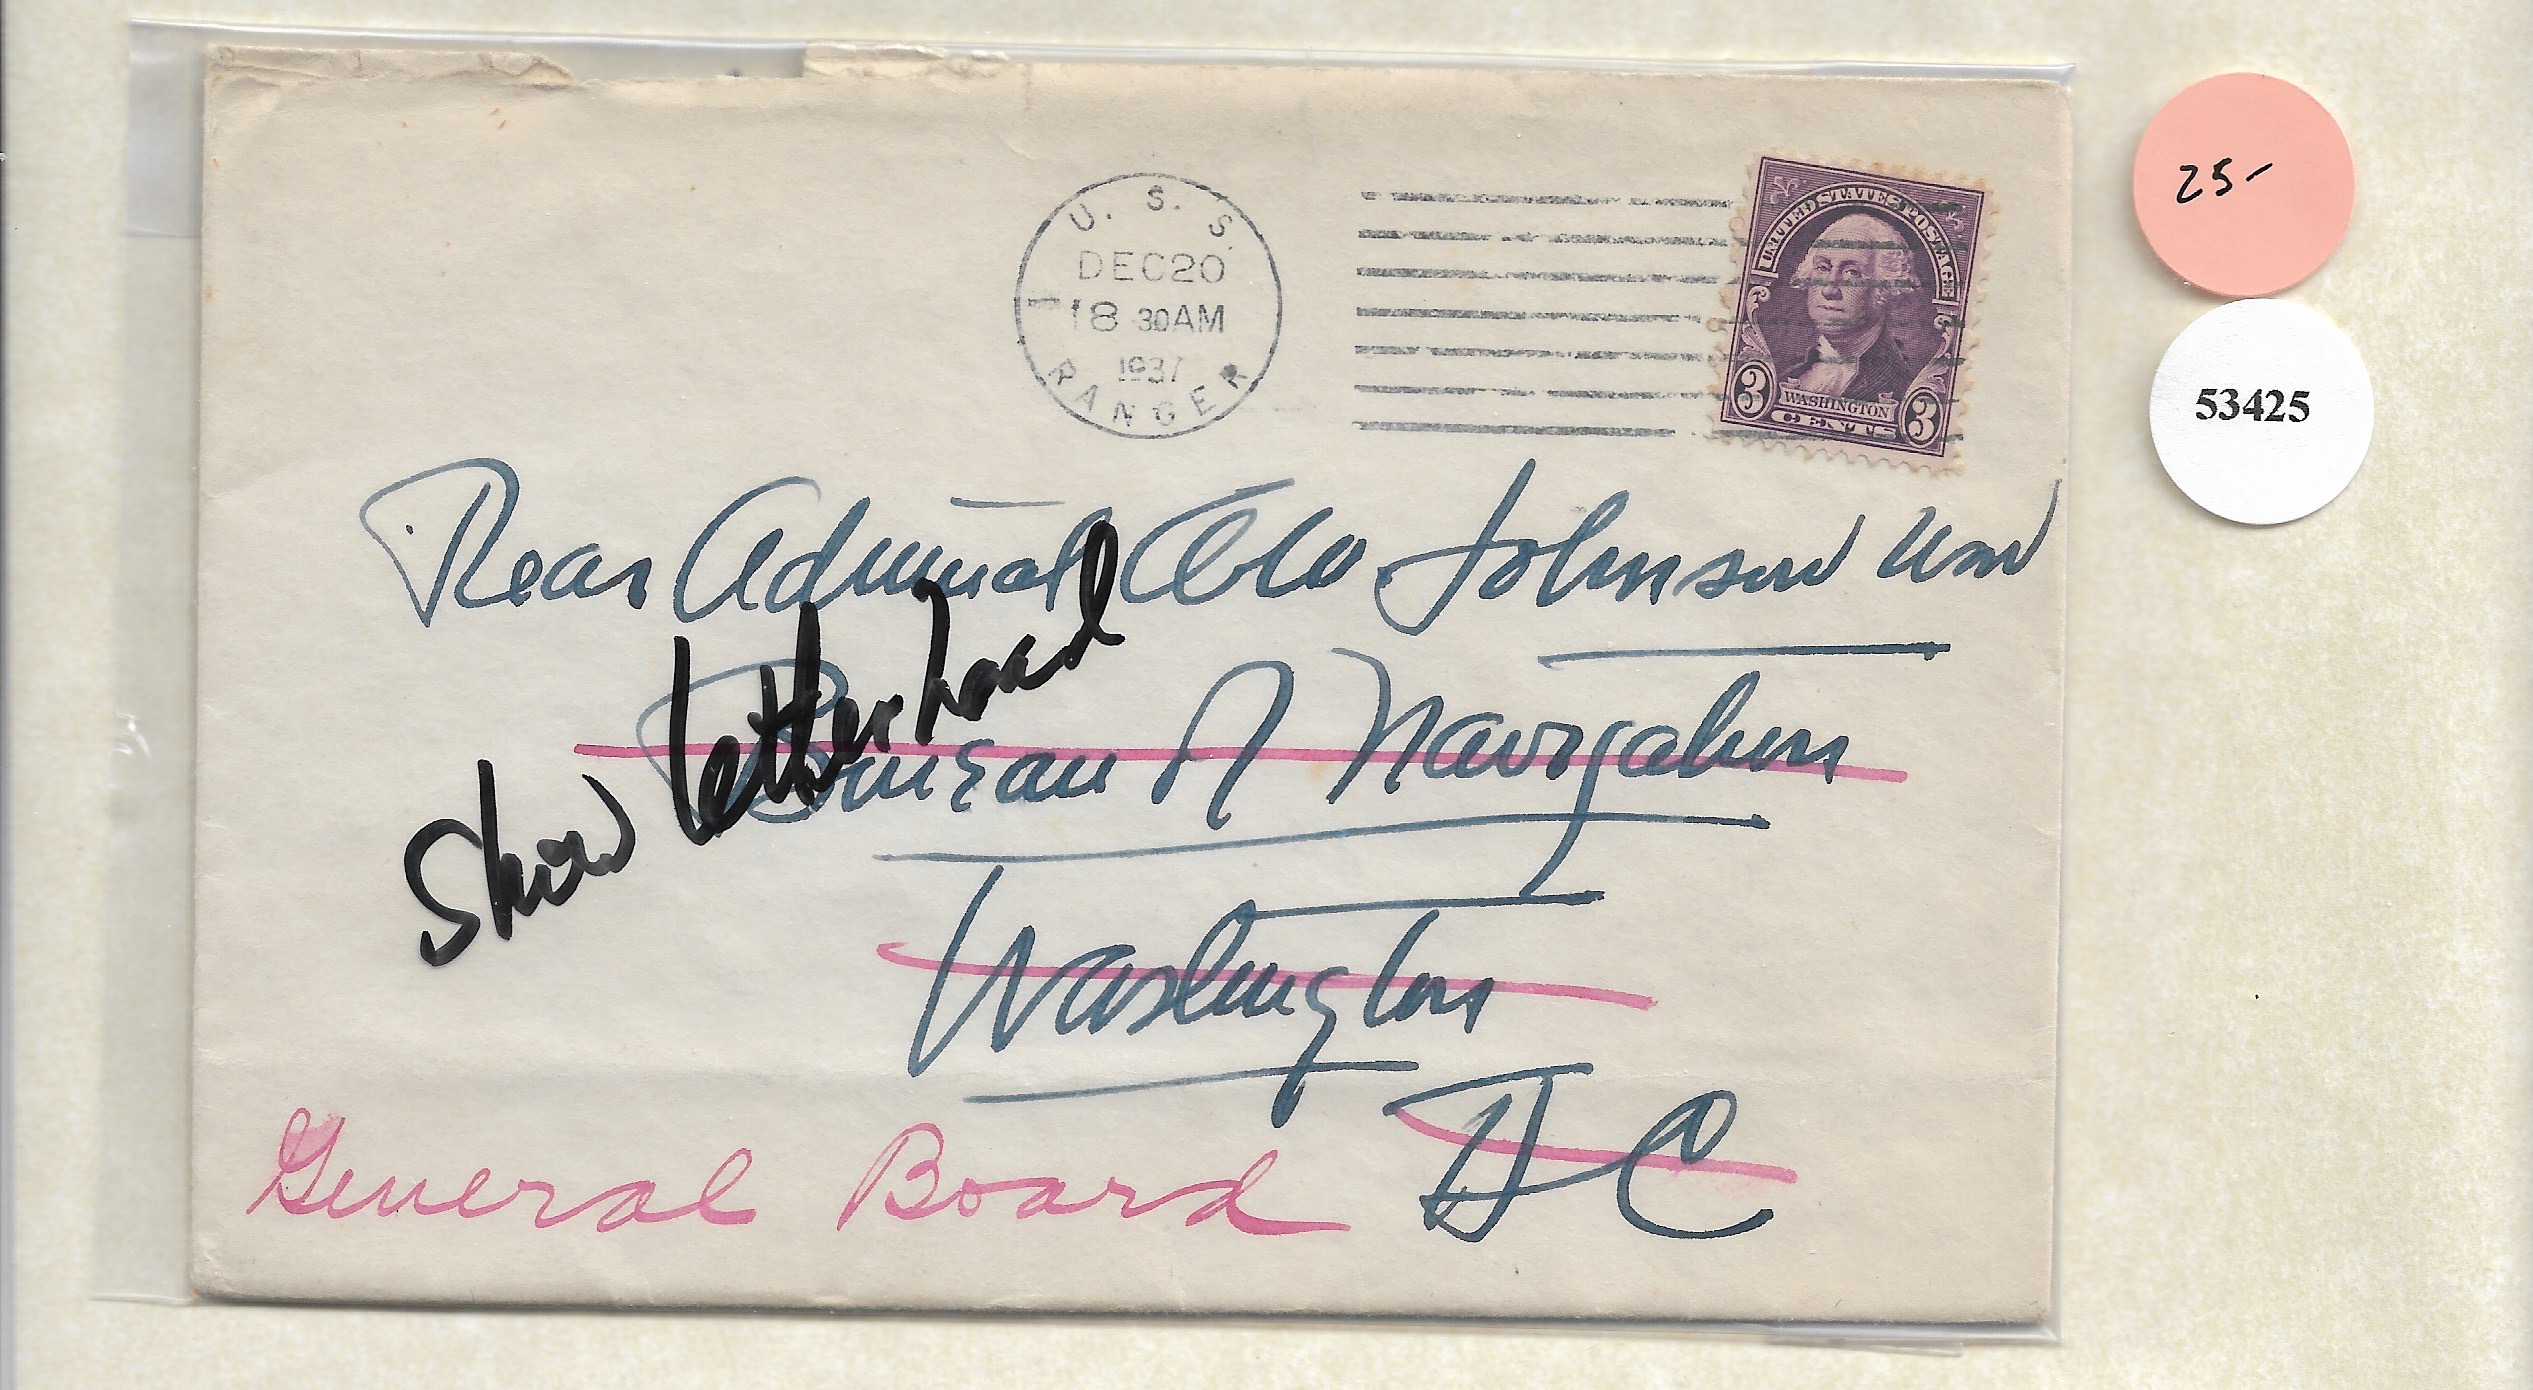 U. S. S.
DEC 20
8 30 AM
1937
RANGER
UNITED STATES POSTAGE
3 WASHINGTON 3
CENTS
25-
53425
Rear Admiral Johnson USN
Show letterhead
Bureau of Navigation
Washington
D C
General Board